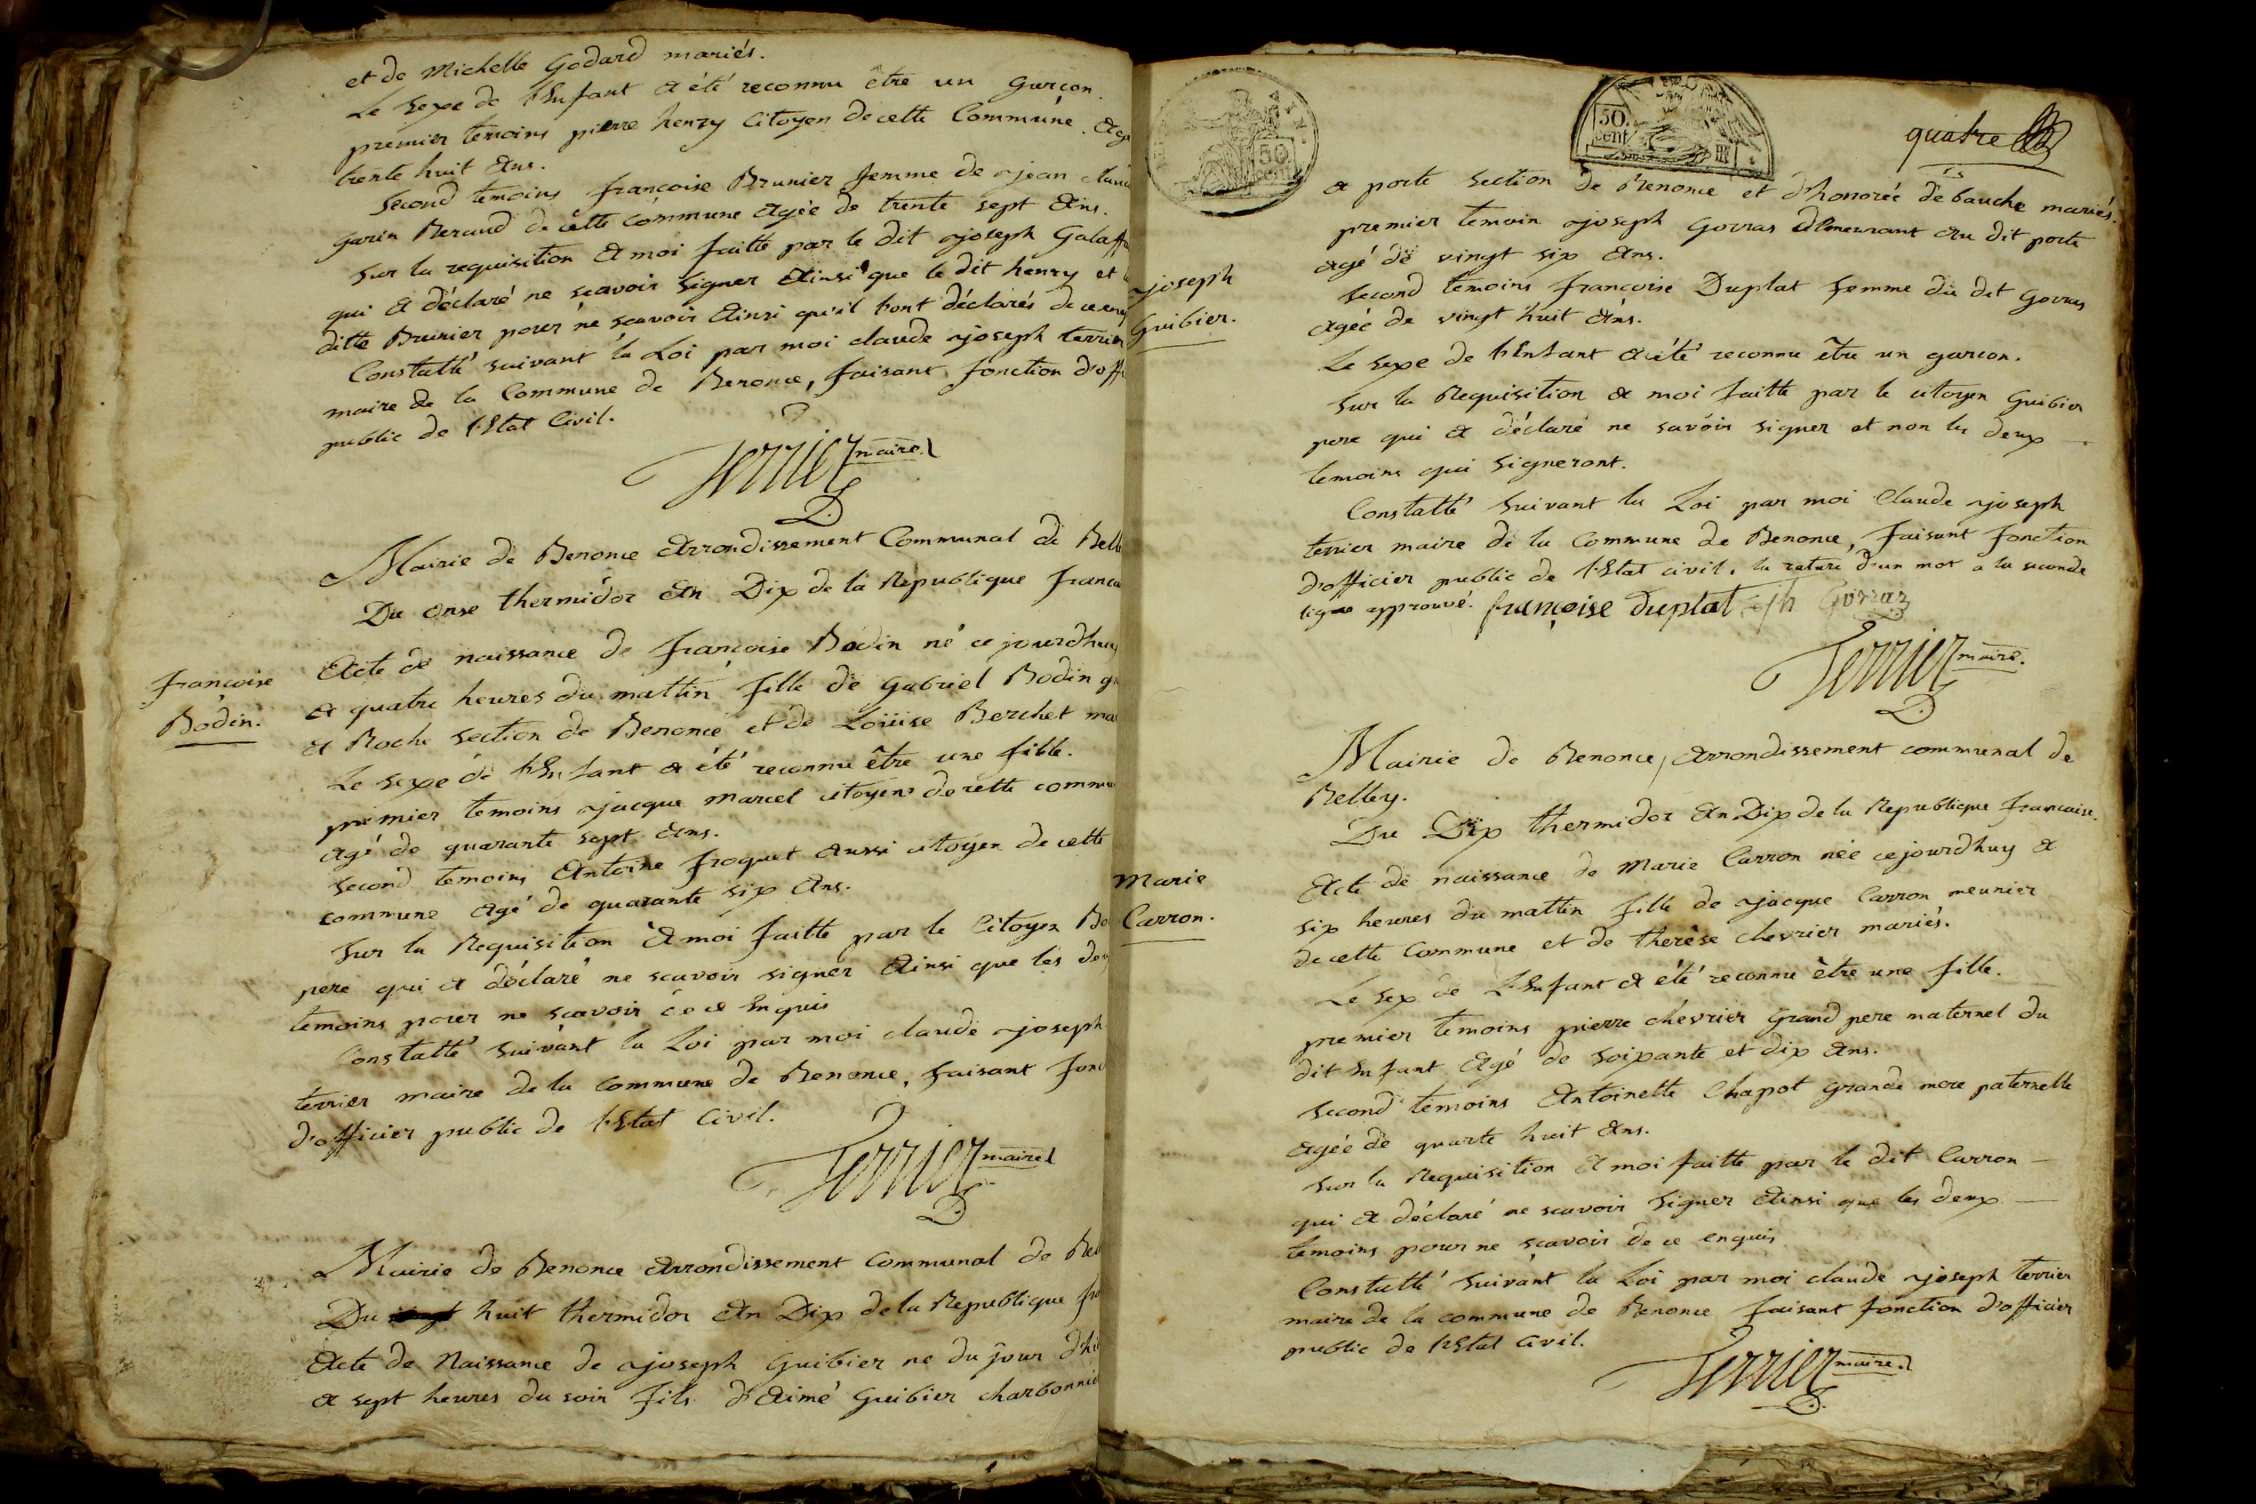 et de Michelle Godard mariés.
Le sexe de l'Enfant a été reconnu être un Garçon.
premier temoins pierre henry Citoyen de cette Commune. agé
trente huit ans.
Second temoins françoise Brunier femme de jean claude
garin Beraud de cette commune agée de trente sept ans.
Sur la requisition a moi faitte par le dit joseph
qui a déclaré ne scavoir signer ainsi que le dit henry et
ditte Brunier pour ne scavoir ainsi qu'il l'ont déclarés de ce
Constatté suivant la Loi par moi claude joseph terrier
maire de la Commune de Benonce, faisant fonction d'offi
public de l'Etat Civil.
Terrier maire
Mairie de Benonce arrondissement Communal de Bell
Du onse thermidor an Dix de la Republique franca
françoise
Bodin.
Acte de naissance de françoise Bodin né ce jourdhuy
a quatre heures du mattin fille de Gabriel Bodin
a Roche section de Benonce et de Loüise Berchet ma
Le sexe de l'Enfant a été reconnu être une fille.
premier temoins jacque marcel citoyen de cette commu
agé de quarante sept ans.
Second temoins Antoine froquet aussi citoyen de cette
commune agé de quarante six ans.
Sur la Requisition a moi faitte par le Citoyen Bo
pere qui a déclaré ne scavoir signer ainsi que les deux
temoins pour ne scavoir de ce Enquis
Constatté suivant la Loi par moi claude joseph
terrier maire de la commune de Benonce, faisant fonc
d'officier public de l'Etat Civil.
Terrier maire
Mairie de Benonce arrondissement Communal de Bell
Du huit thermidor an Dix de la Republique fra
Acte de Naissance de joseph Guibier ne du jour d'hi
a sept heures du soir fils d'aimé Guibier charbonnie
50
cent
50.
cent
quatre
joseph
Guibier.
a porte section de Benonce et d'honorée debauche mariés.
premier temoin joseph Gorras demeurant au dit porte
agé de vingt six ans.
Second temoins francoise Duplat femme du dit Gorras
agée de vingt huit ans.
Le sexe de l'Enfant a été reconnu être un garcon.
Sur la Requisition a moi faitte par le citoyen Guibier
pere qui a déclaré ne savoir signer et non les deux
temoins qui signeront.
Constatté suivant la Loi par moi Claude joseph
terrier maire de la Commune de Benonce, faisant fonction
d'officier public de l'Etat civil. la rature d'un mot a la seconde
ligne approuvé. françoise duplat jph Gorras
Terrier maire.
Mairie de Benonce, arrondissement communal de
Belley.
Du Dix thermidor an Dix de la Republique francaise.
Marie
Carron.
Acte de naissance de Marie Carron née ce jourdhuy a
six heures du mattin fille de jacque Carron meunier
de cette Commune et de therèse chevrier mariés.
Le sex de L'Enfant a été reconnu être une fille.
premier temoins pierre chevrier Grand pere maternel du
dit Enfant agé de soixante et dix ans.
Second temoins Antoinette Chapot grande mere paternelle
agée de quarte huit ans.
Sur la Requisition a moi faitte par le dit Carron
qui a déclaré ne scavoir signer ainsi que les deux
temoins pour ne scavoir de ce enquis
Constatté suivant la Loi par moi claude joseph terrier
maire de la commune de Benonce faisant fonction d'officier
public de l'Etat Civil.
Terrier maire